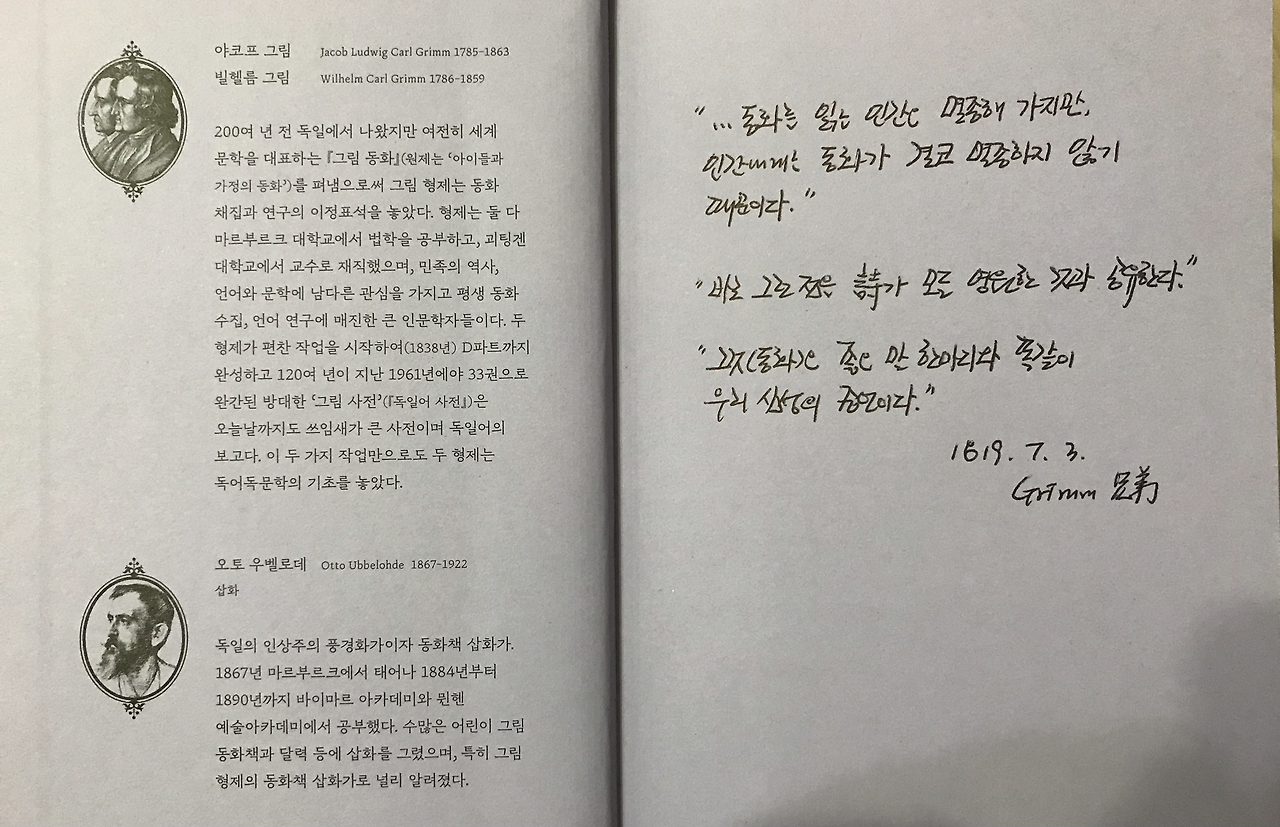 야코프 그림 Jacob Ludwig Carl Grimm 1785-1863
빌헬름 그림 Wilhelm Carl Grimm 1786-1859
200여 년 전 독일에서 나왔지만 여전히 세계
문학을 대표하는 『그림 동화』(원제는 ‘아이들과
가정의 동화’)를 펴냄으로써 그림 형제는 동화
채집과 연구의 이정표석을 놓았다. 형제는 둘 다
마르부르크 대학교에서 법학을 공부하고, 괴팅겐
대학교에서 교수로 재직했으며, 민족의 역사,
언어와 문학에 남다른 관심을 가지고 평생 동화
수집, 언어 연구에 매진한 큰 인문학자들이다. 두
형제가 편찬 작업을 시작하여(1838년) D파트까지
완성하고 120여 년이 지난 1961년에야 33권으로
완간된 방대한 ‘그림 사전’(『독일어 사전』)은
오늘날까지도 쓰임새가 큰 사전이며 독일어의
보고다. 이 두 가지 작업만으로도 두 형제는
독어독문학의 기초를 놓았다.
오토 우벨로데 Otto Ubbelohde 1867-1922
삽화
독일의 인상주의 풍경화가이자 동화책 삽화가.
1867년 마르부르크에서 태어나 1884년부터
1890년까지 바이마르 아카데미와 뮌헨
예술아카데미에서 공부했다. 수많은 어린이 그림
동화책과 달력 등에 삽화를 그렸으며, 특히 그림
형제의 동화책 삽화가로 널리 알려졌다.
“... 동화를 읽는 인간은 멸종해 가지만,
인간에게는 동화가 결코 멸종하지 않기
때문이다.”
“바로 그런 점은 詩가 모든 영원한 것과 共有한다.”
“그것(동화)은 좁은 만 한마리와 똑같이
우리 신성의 증언이다.”
1819. 7. 3.
Grimm 兄弟